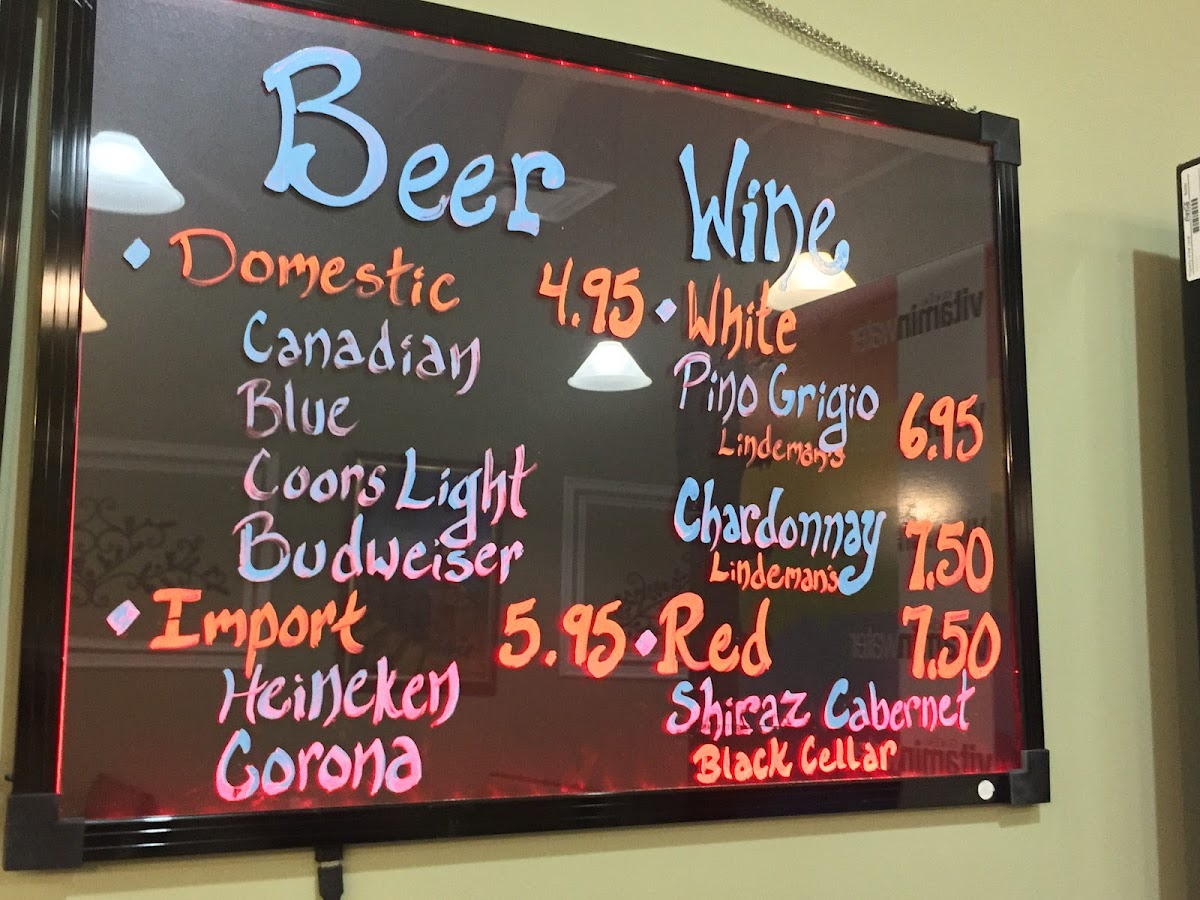 Beer
Domestic 4.95
Canadian
Blue
Coors Light
Budweiser
Import 5.95
Heineken
Corona
Wine
White
Pino Grigio 6.95
Lindeman's
Chardonnay 7.50
Lindeman's
Red 7.50
Shiraz Cabernet
Black Cellar
vitaminwater